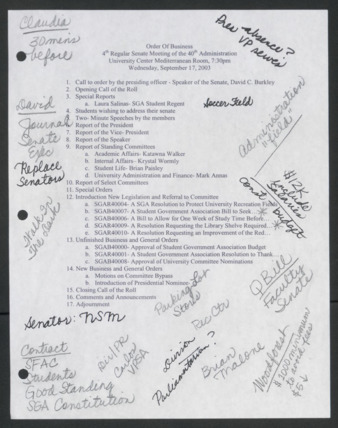 Claudia
30 mins
before
Dee absence?
VP news
Order Of Business
4th Regular Senate Meeting of the 40th Administration
University Center Mediterranean Room, 7:30pm
Wednesday, September 17, 2003
1. Call to order by the presiding officer - Speaker of the Senate, David C. Barkley
2. Opening Call of the Roll
3. Special Reports
a. Laura Salmas- SGA Student Regent
Soccer Field
4. Students wishing to address their senate
5. Two- Minute Speeches by the members
6. Report of the President
7. Report of the Vice- President
8. Report of the Speaker
9. Report of Standing Committees
a. Academic Affairs- Katawna Walker
b. Internal Affairs - Krystal Warmly
c. Student Life- Brian Paisley
d. University Administration and Finance- Mark Annas
10. Report of Select Committees
11. Special Orders
12. Introduction New Legislation and Referral to Committee
a. SGAR40004- A SGA Resolution to Protect University Recreation Fields
b. SGAB40007- A Student Government Association Bill to Seek
c. SGAB40006- A Bill to Allow for One Week of Study Time Before
d. SGAR40009- A Resolution Requesting the Library Shelve Required
e. SGAR40010- A Resolution Requesting an Improvement of the Rod
13. Unfinished Business and General Orders
a. SGAB40000- Approval of Student Government Association Budget
b. SGAR40001- A Student Government Association Resolution to Thank
c. SGAB40008- Approval of University Committee Nominations
14. New Business and General Orders
a. Motions on Committee Bypass
b. Introduction of Presidential Nominees
15. Closing Call of the Roll
16. Comments and Announcements
17. Adjournment
David
Journal
Senate
Exec
Replace
Senators
Administration
Field
Budget
Parking Lot
Q Bill
Faculty
Senate
Senator: NSM
Rec Ctr
Contract
SFAC
Students
Good Standing
SGA Constitution
VISA
Division
Parliamentarian?
Brian
Malone
Woodforest